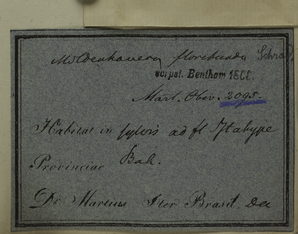 Moldenhauera floribunda Schrad
Bentham 18
Mart. Obs. 2095.
Habitat in sylvis ad fl Itahype
Provinciae Bah.
Dr Martius Iter Brasil. Dec